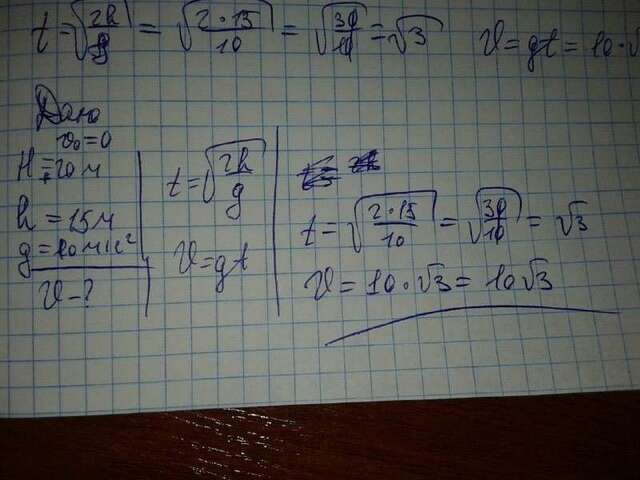 t = √(2h/g) = √(2·15/10) = √(30/10) = √3   V = gt = 10·√
Дано
v₀ = 0
H = 20 м
h = 15 м
g = 10 м/с²
V - ?
t = √(2h/g)
V = gt
t = √(2·15/10) = √(30/10) = √3
V = 10·√3 = 10√3